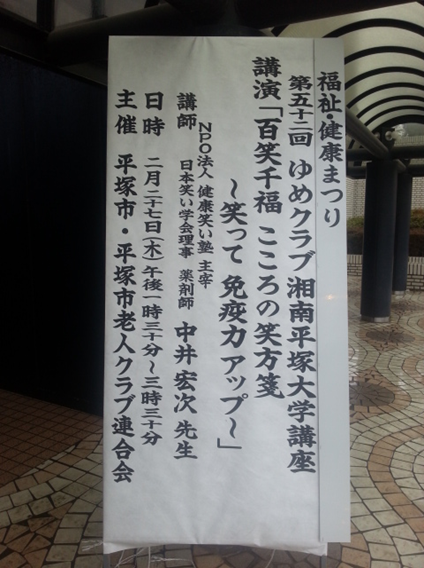 福祉・健康まつり
第五十二回 ゆめクラブ湘南平塚大学講座
講演「百笑千福 こころの笑方箋
～笑って 免疫力 アップ～」
NPO法人 健康笑い塾 主宰
講師 日本笑い学会理事 薬剤師 中井 宏次 先生
日時 二月二十七日(木)午後一時三十分～三時三十分
主催 平塚市・平塚市老人クラブ連合会